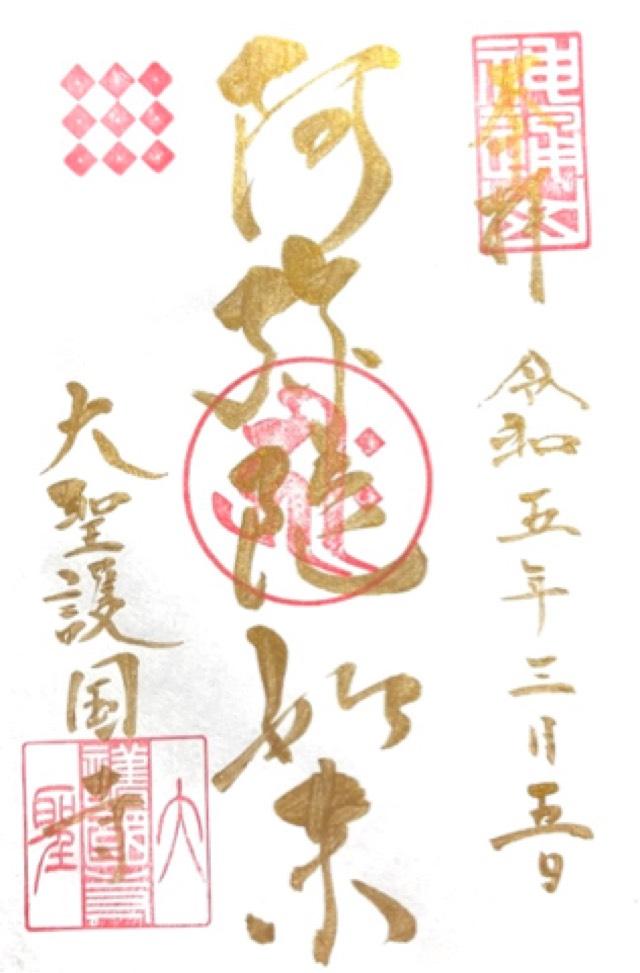 奉拝
令和五年三月五日
阿弥陀如来
大聖護国寺
大聖
護國寺